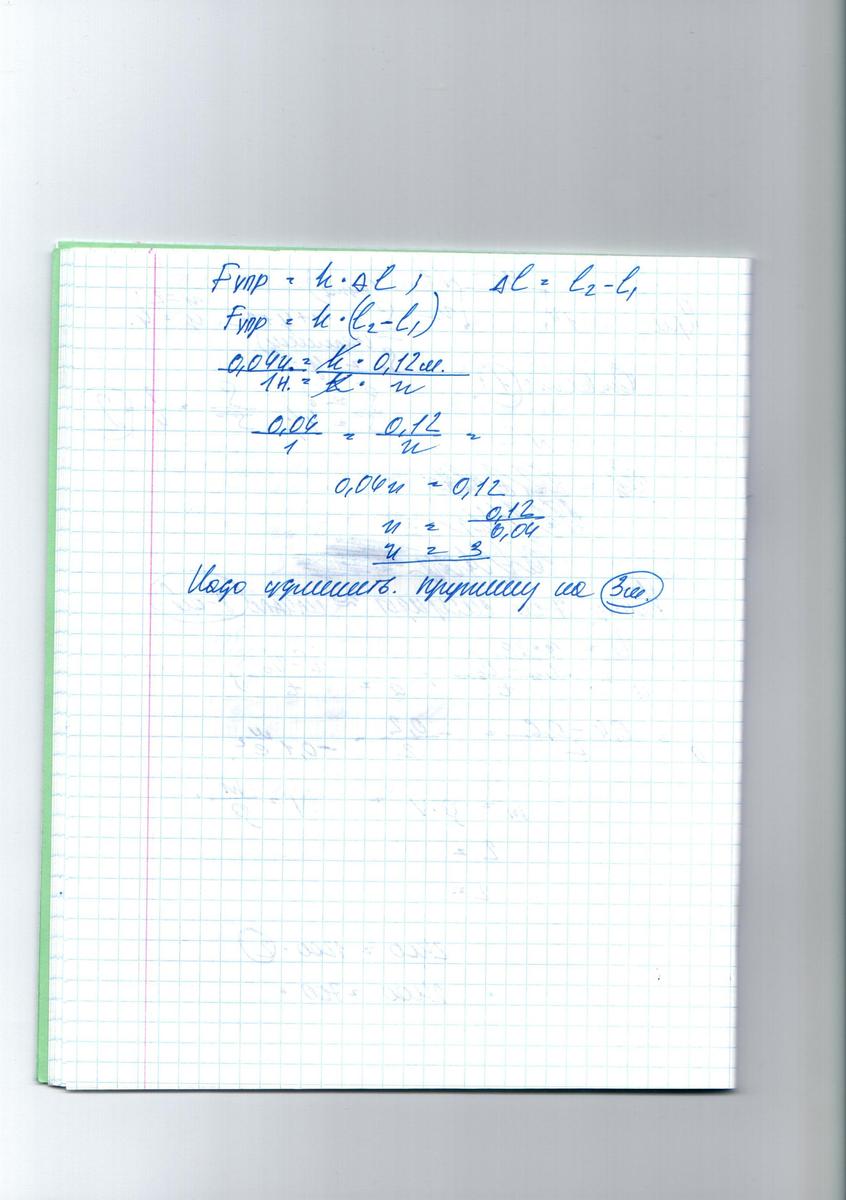 Fупр = k·Δl, Δl = l₂-l₁
Fупр = k·(l₂-l₁)
0,04н. = k · 0,12м.
1н. = k · н
0,04/1 = 0,12/н =
0,04н = 0,12
н = 0,12/0,04
н = 3
Надо удлинить. пружину на 3м.